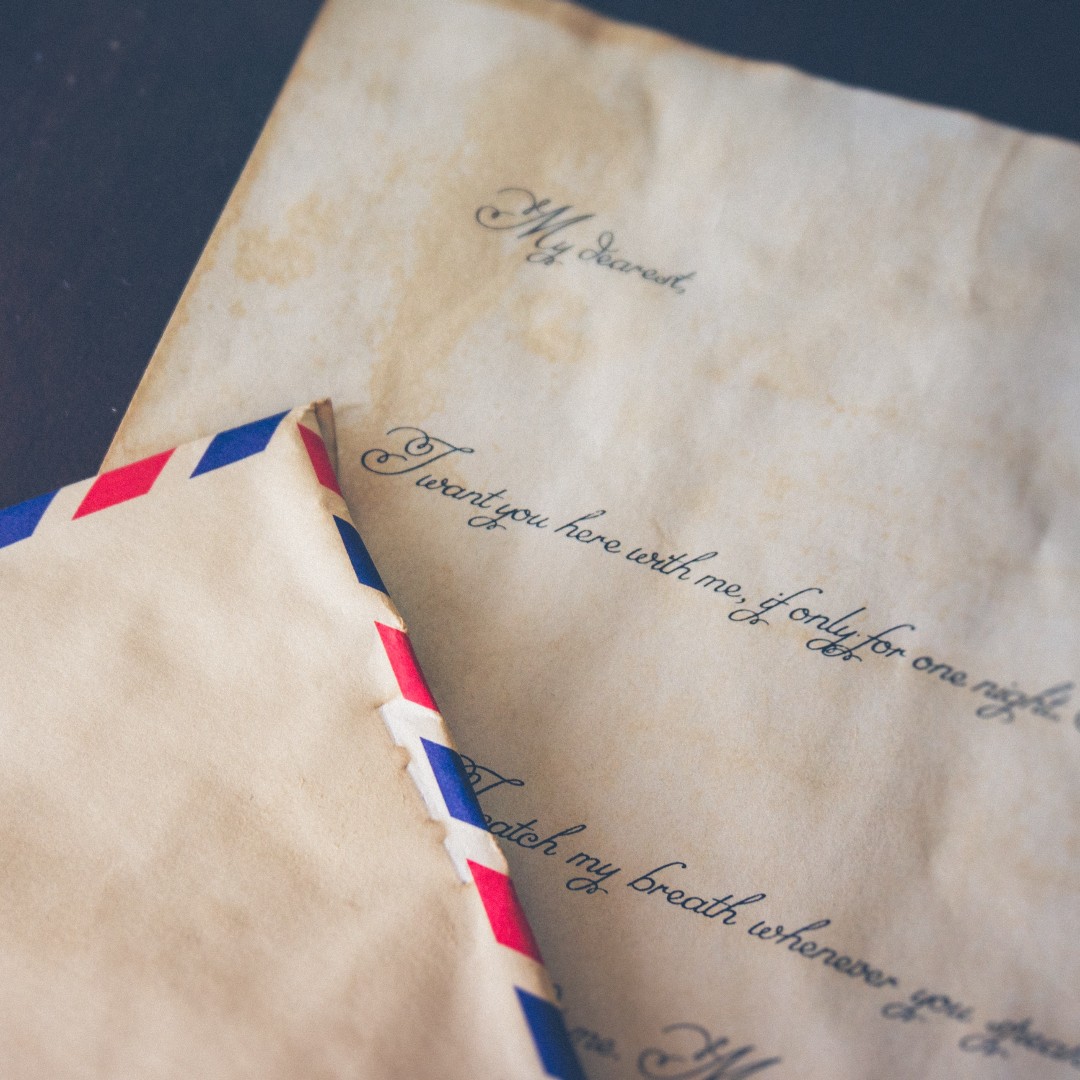 My dearest,
I want you here with me, if only for one night.
I catch my breath whenever you speak
me. M